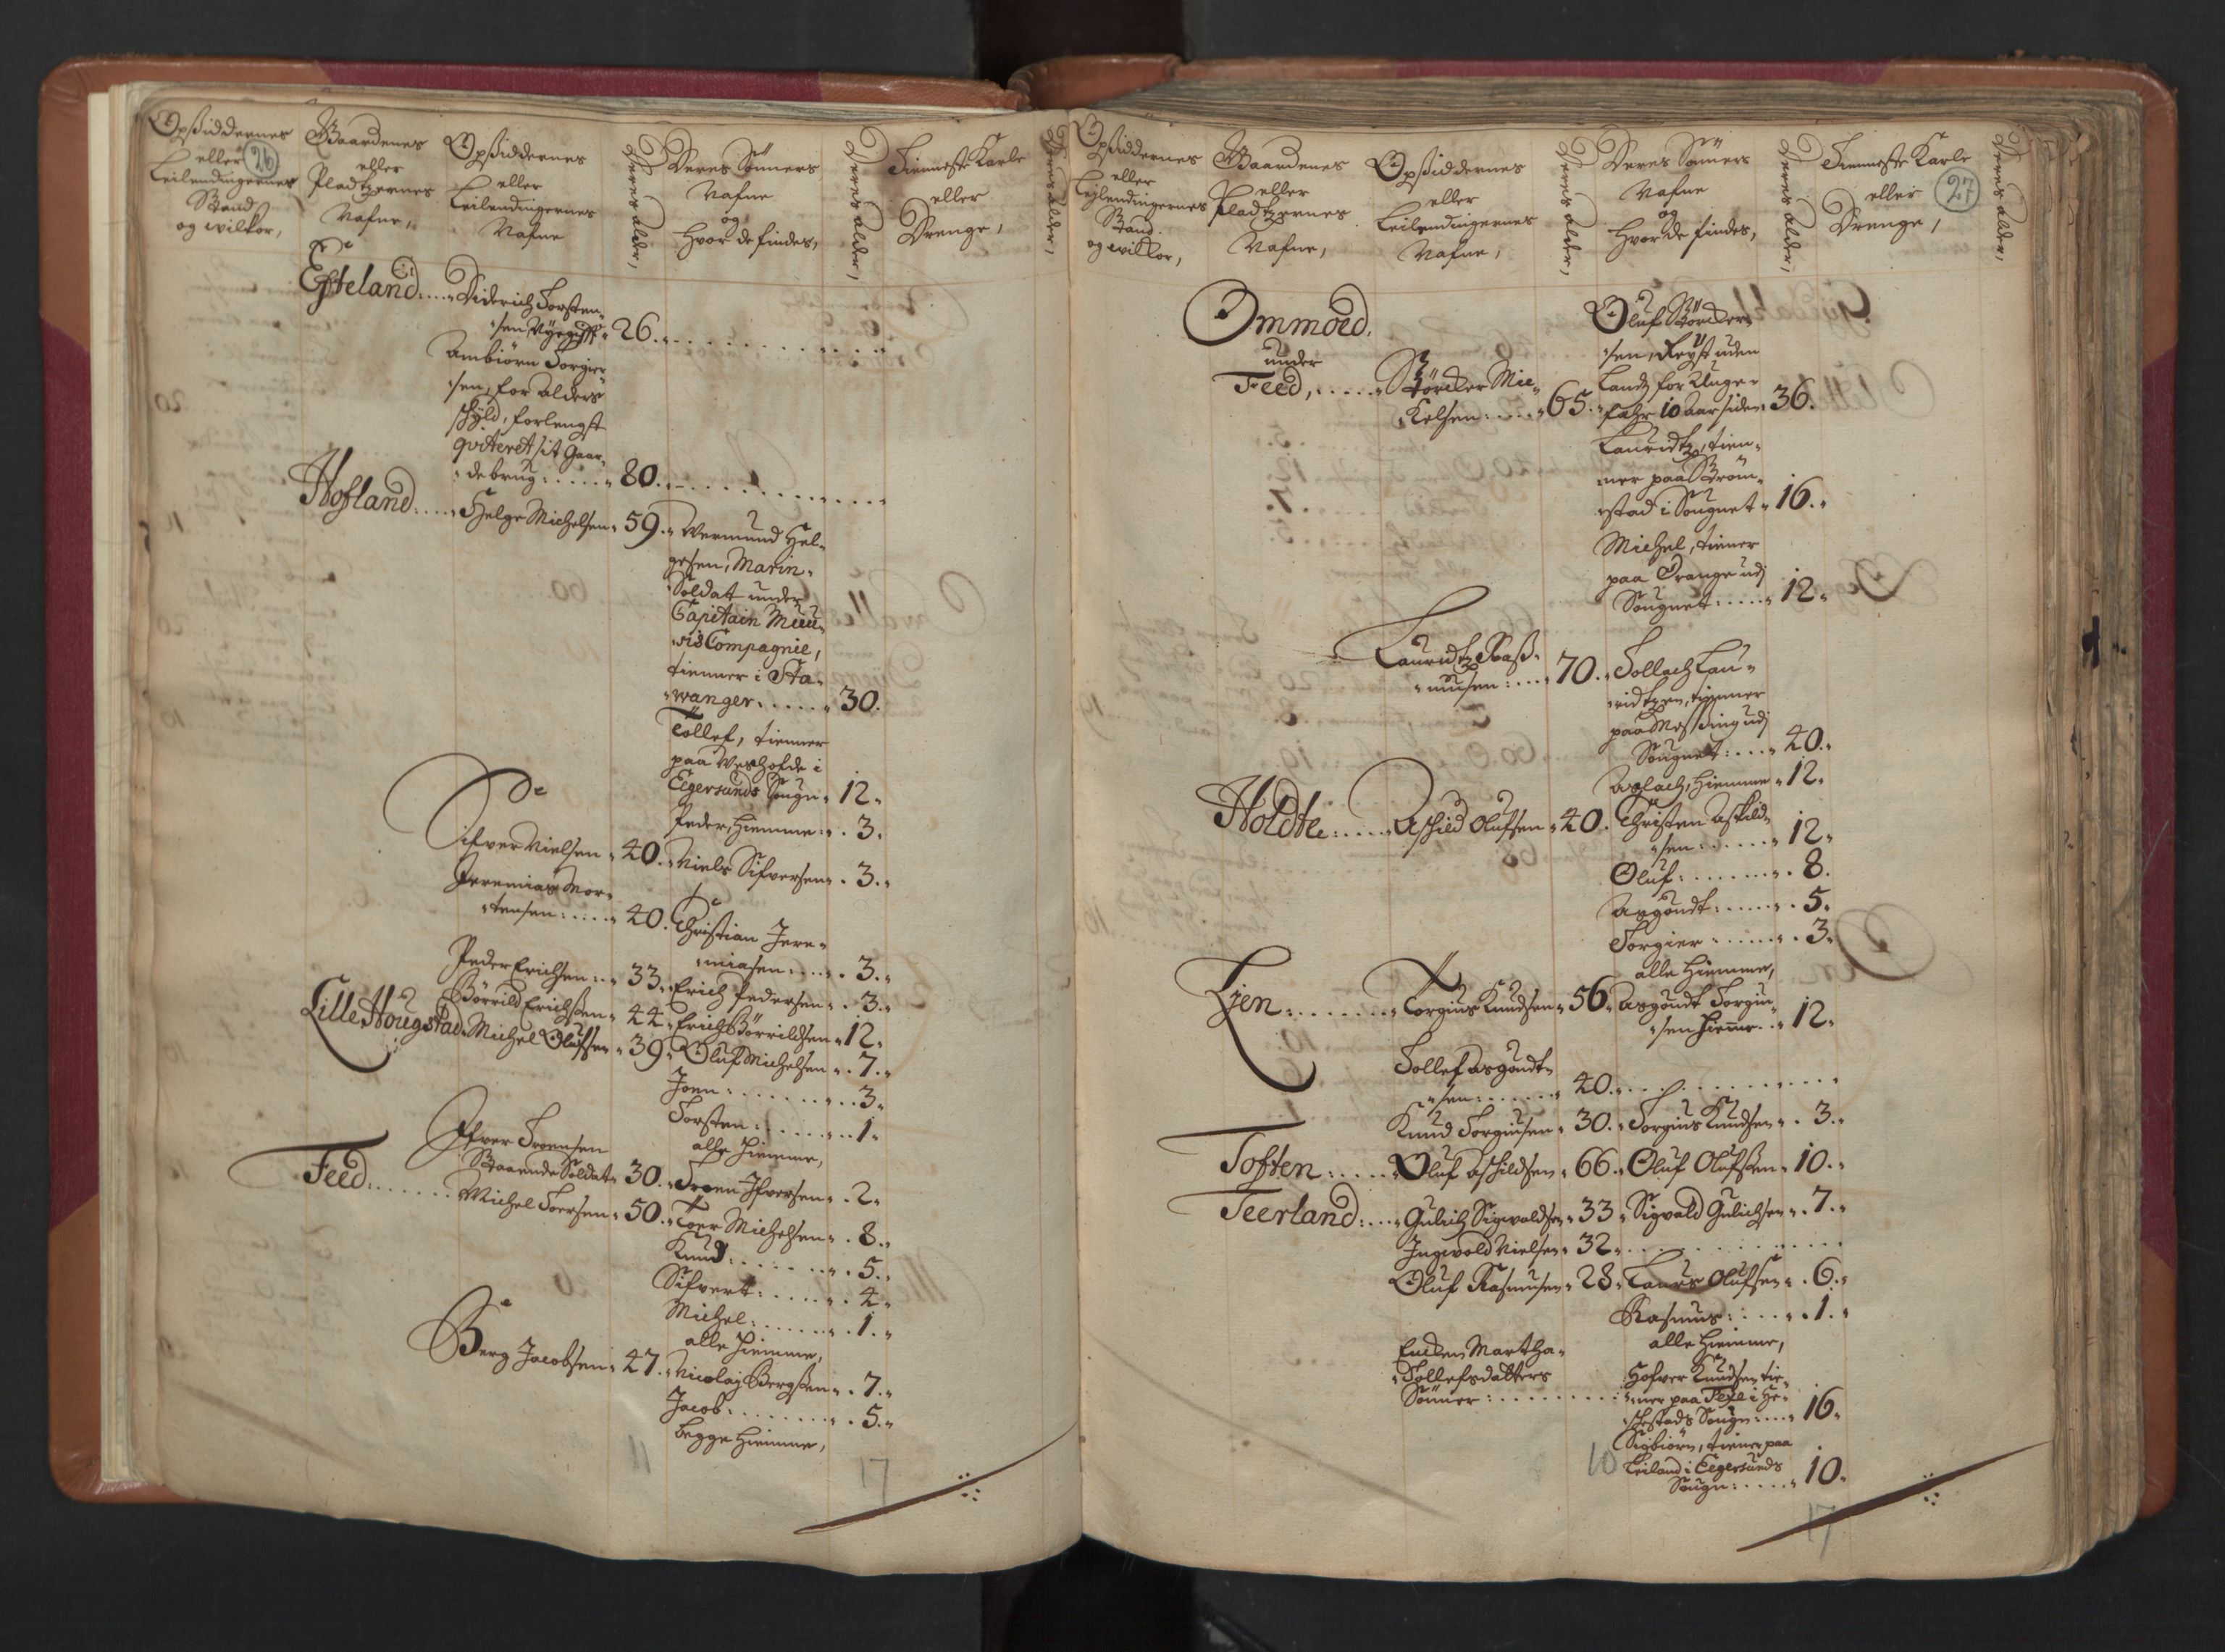 Opsiddernes
eller
Leilendingernes
Stand
og vilkor,
26
Gaardenes
eller
Pladtzernes
Nafne,
Opsiddernes
eller
Leilendingernes
Nafne
Deres alder,
Deres Sönners
Nafne
og
hvor de findes,
Deres alder,
Tienneste Karle
eller
Drenge,
Deres alder,
Efteland..... Diderich Torsten-
sen Nÿegifft 26.
Ambiörn Torgier
sen, for alders
schÿld, forlengst
qviteret sit Gaar-
de brug: ..... 80.
Hofland.... Helge Michelsen 59. Wermund Hel-
gesen, Marin-
Soldat under
Capitain
Compagnie,
tienner i Sta-
wanger..... 30.
Tollef, tienner
paa Vesthofde i
Eegersunds Sougn 12.
Peder, hiemme: . 3.
Sifver Nielsen 40. Niels Sifversen . 3.
Jeremias Mor-
tensen: .... 40. Christian Jere-
miasen: .... 3.
Peder Erichsen: .. 33. Erich Pedersen . 3.
Börrild Erichsen 44. Erich Börrildsen 12.
Lille Hougstad. Michel Olufsen 39. Oluf Michelsen . 7.
Joen: ....... 3.
Torsten: ...... 1.
alle hiemme,
Ifver Svensen
Staaende Soldat 30. Sven Ifversen . 2.
Feed: ...... Michel Toersen 50. Toer Michelsen . 8.
Knud: ...... 5.
Sifvert: ..... 4.
Michel: ...... 1.
alle hiemme,
Berg Jacobsen 47. Nicolaj Bergsen . 7.
Jacob: ....... 5.
begge hiemme,
11
17
Opsiddernes
eller
Leilendingernes
Stand
og vilkor,
Gaardenes
eller
Pladtzernes
Nafne,
Opsiddernes
eller
Leilendingernes
Nafne,
Deres alder,
Deres Sönners
Nafne
og
hvor de findes,
Deres alder,
Tienneste Karle
eller
Drenge,
27
Deres alder,
Ommoed.
under
Feed, ..... Störcker Mic-
kelsen: .... 65.
Oluf Störcker-
sen, Reÿst uden
Landz for Unge-
fæhr 10 aar siden 36.
Lauridtz, tien-
ner paa Ström-
stad i Sougnet 16.
Michel, tiener
paa Orange udj
Sougnet: .... 12.
Lauridtz Rass-
musen: .... 70. Tollach Lau-
ridtzen, tienner
paa Messing udj
Sougnet: .... 40.
Aslach, hiemme 12.
Holdte: .... Aschild Olufsen 40. Christen Askild-
sen ...... 12.
Oluf: ....... 8.
Asgoudt: ..... 5.
Torgier ...... 3.
alle hiemme,
Lien: ....... Torgius Knudsen 56. Asgoudt Torgiu-
sen hieme. .. 12.
Tollef Asgoudt-
sen: ...... 40.
Knud Torgiusen 30. Torgius Knudsen . 3.
Toften: .... Oluf Aschildsen 66. Oluf Olufsen 10.
Teerland: ... Gulich Sigvaldsen 33. Sigvald Gulichsen . 7.
Ingvold Nielsen 32.
Oluf Rasmusen 28. Laurs Olufsen . 6.
Rasmus: ..... 1.
alle hiemme,
Encken Martha
Tollefsdatters
Sönner: ........ Hofver Knudsen tie-
ner paa i He-
schestads Sougn: .... 16.
Sigbiörn, tiener paa
Leiland i Eegersunds
Sougn: ..... 10.
10
17